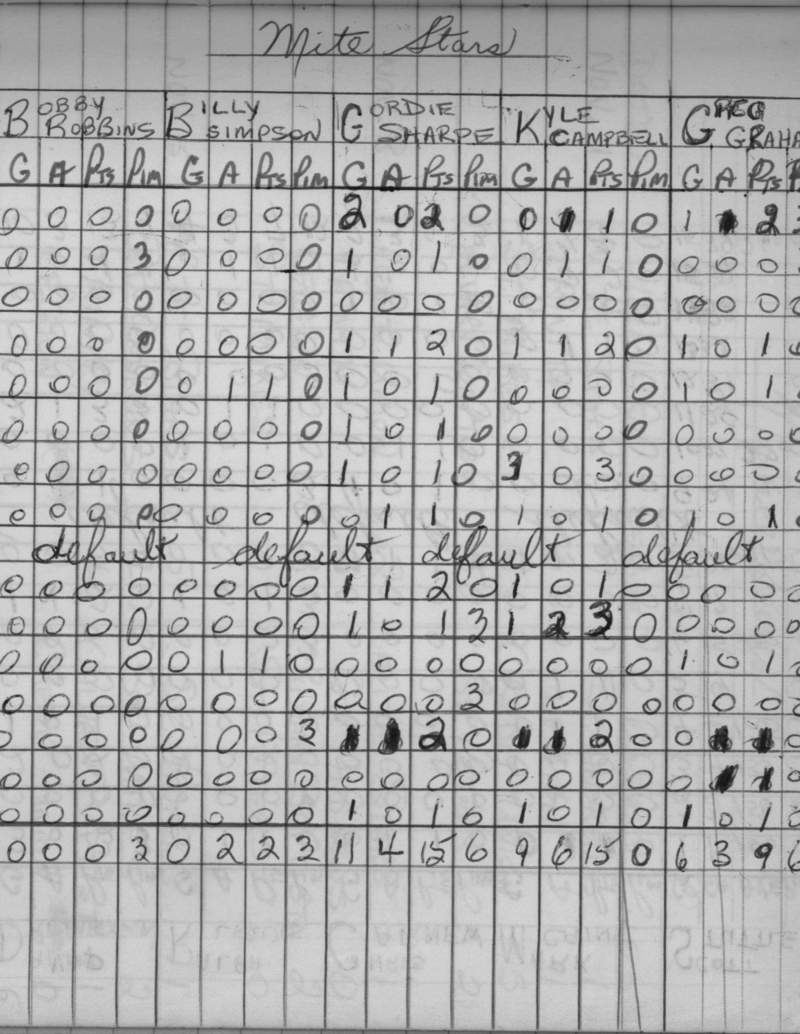 Mite Stars
BOBBY ROBBINS BILLY SIMPSON GORDIE SHARPE KYLE CAMPBELL GREG GRAHA
G A Pts Pim G A Pts Pim G A Pts Pim G A Pts Pim G A Pts P
0 0 0 0 0 0 0 0 2 0 2 0 0 1 1 0 1 1 2
0 0 0 3 0 0 0 0 1 0 1 0 0 1 1 0 0 0 0
0 0 0 0 0 0 0 0 0 0 0 0 0 0 0 0 0 0 0 0
0 0 0 0 0 0 0 0 1 1 2 0 1 1 2 0 1 0 1
0 0 0 0 0 1 1 0 1 0 1 0 0 0 0 0 1 0 1
0 0 0 0 0 0 0 0 1 0 1 0 0 0 0 0 0 0 0 0
0 0 0 0 0 0 0 0 1 0 1 0 3 0 3 0 0 0 0
0 0 0 0 0 0 0 0 0 1 1 0 1 0 1 0 1 0 1
default default default default
0 0 0 0 0 0 0 0 1 1 2 0 1 0 1 0 0 0 0 0
0 0 0 0 0 0 0 0 1 0 1 3 1 2 3 0 0 0 0 0
0 0 0 0 0 1 1 0 0 0 0 0 0 0 0 0 1 0 1
0 0 0 0 0 0 0 0 0 0 0 3 0 0 0 0 0 0 0
0 0 0 0 0 0 0 3 1 1 2 0 1 1 2 0 0 1 1 0
0 0 0 0 0 0 0 0 0 0 0 0 0 0 0 0 0 1 1 0
0 0 0 0 0 0 0 0 1 0 1 0 1 0 1 0 1 0 1
0 0 0 3 0 2 2 3 11 4 15 6 9 6 15 0 6 3 9 6